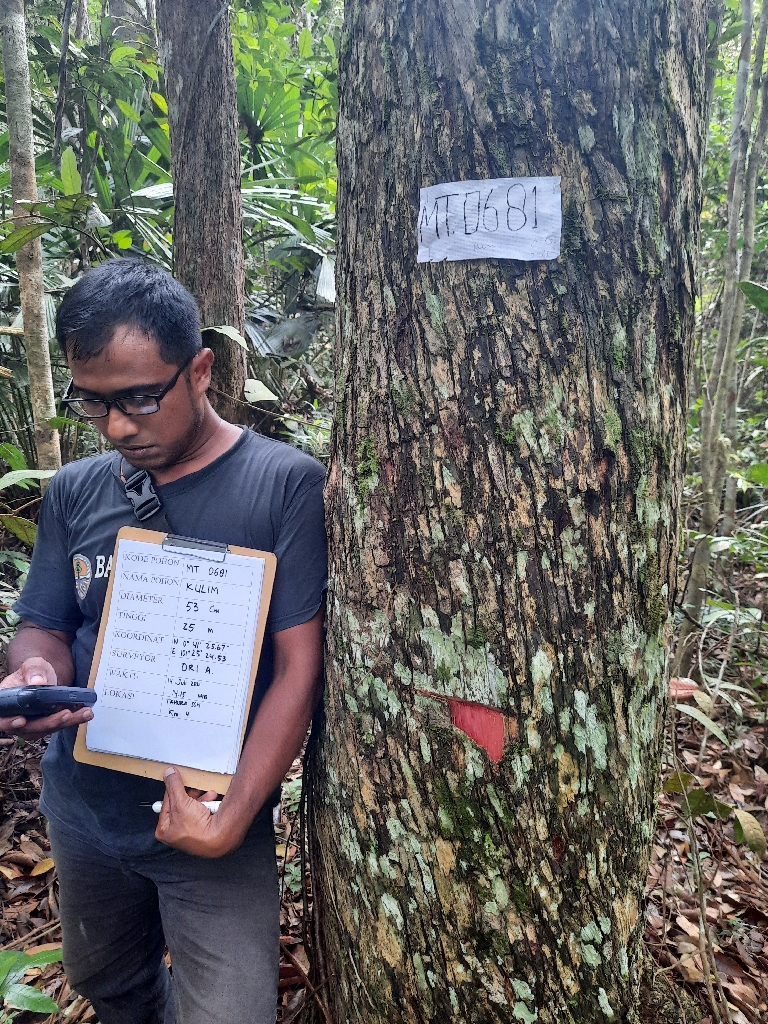 MT. 0681
BA
KODE POHON MT 0681
NAMA POHON KULIM
DIAMETER 53 Cm
TINGGI 25 m
KOORDINAT N 0° 41' 25.67"
E 101° 25' 24.53
SURVEYOR ORI A.
WAKTU
LOKASI TAHURA SSH
Km 4